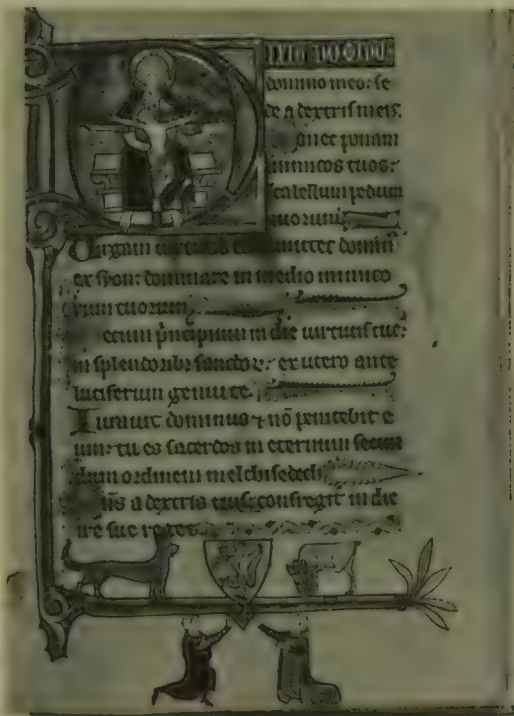 domino meo: se
de a dextris meis.
onec ponam
inimicos tuos:
scabellum pedum
tuorum.
irgam uirtutis emittet domin
ex syon: dominare in medio inimico
rum tuorum.
ecum principium in die uirtutis tue:
in splendoribz sanctor: ex utero ante
luciferum genui te.
Iurauit dominus ⁊ nō penitebit e
um: tu es sacerdos in eternum secun
dum ordinem melchisedech.
ñs a dextris tuis: confregit in die
ire sue reges.